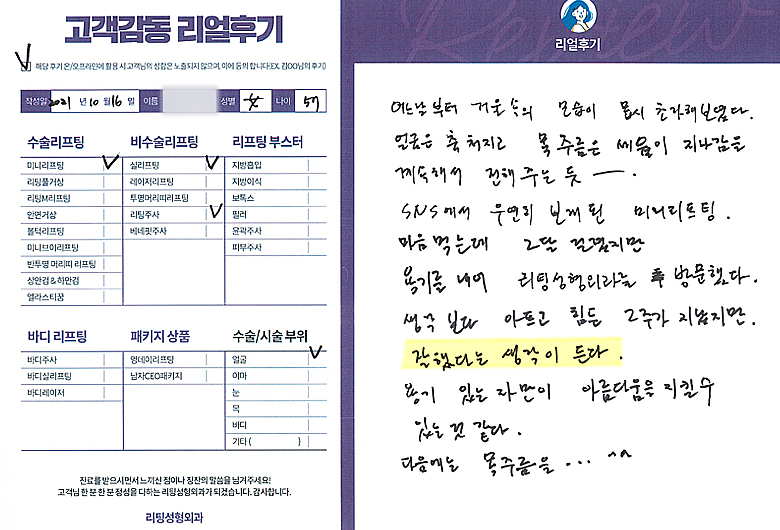 고객감동 리얼후기
해당 후기 온/오프라인에 활용 시 고객님의 성함은 노출되지 않으며, 이에 동의 합니다(EX. 김OO님의 후기)
작성일 2021 년 10 월 16 일 이름 성별 女 나이 57
수술리프팅 비수술리프팅 리프팅 부스터
미니리프팅 실리프팅 지방흡입
리팅풀거상 레이저리프팅 지방이식
리팅M리프팅 투명머리띠리프팅 보톡스
안면거상 리팅주사 필러
볼턱리프팅 베네핏주사 윤곽주사
미니브이리프팅 피부주사
반투명 머리띠 리프팅
상안검 & 하안검
엘라스티꿈
바디 리프팅 패키지 상품 수술/시술 부위
바디주사 엉데이리프팅 얼굴
바디실리프팅 남자CEO패키지 이마
바디레이저 눈
목
바디
기타 ( )
진료를 받으시면서 느끼신 점이나 칭찬의 말씀을 남겨주세요!
고객님 한 분 한 분 정성을 다하는 리팅성형외과가 되겠습니다. 감사합니다.
리팅성형외과
Review
리얼후기
어느날 부터 거울 속의 모습이 몹시 초라해보였다.
얼굴은 축 쳐지고 목주름은 세월이 지나감을
계속해서 전해 주는 듯 ―.
SNS에서 우연히 보게 된 미니리프팅.
마음 먹는데 2달 걸렸지만
용기를 내어 리팅성형외과를 방문했다.
생각 보다 아프고 힘든 2주가 지났지만.
잘했다는 생각이 든다.
용기 있는 자만이 아름다움을 지킬수
있는 것 같다.
다음에는 목주름을... ^^